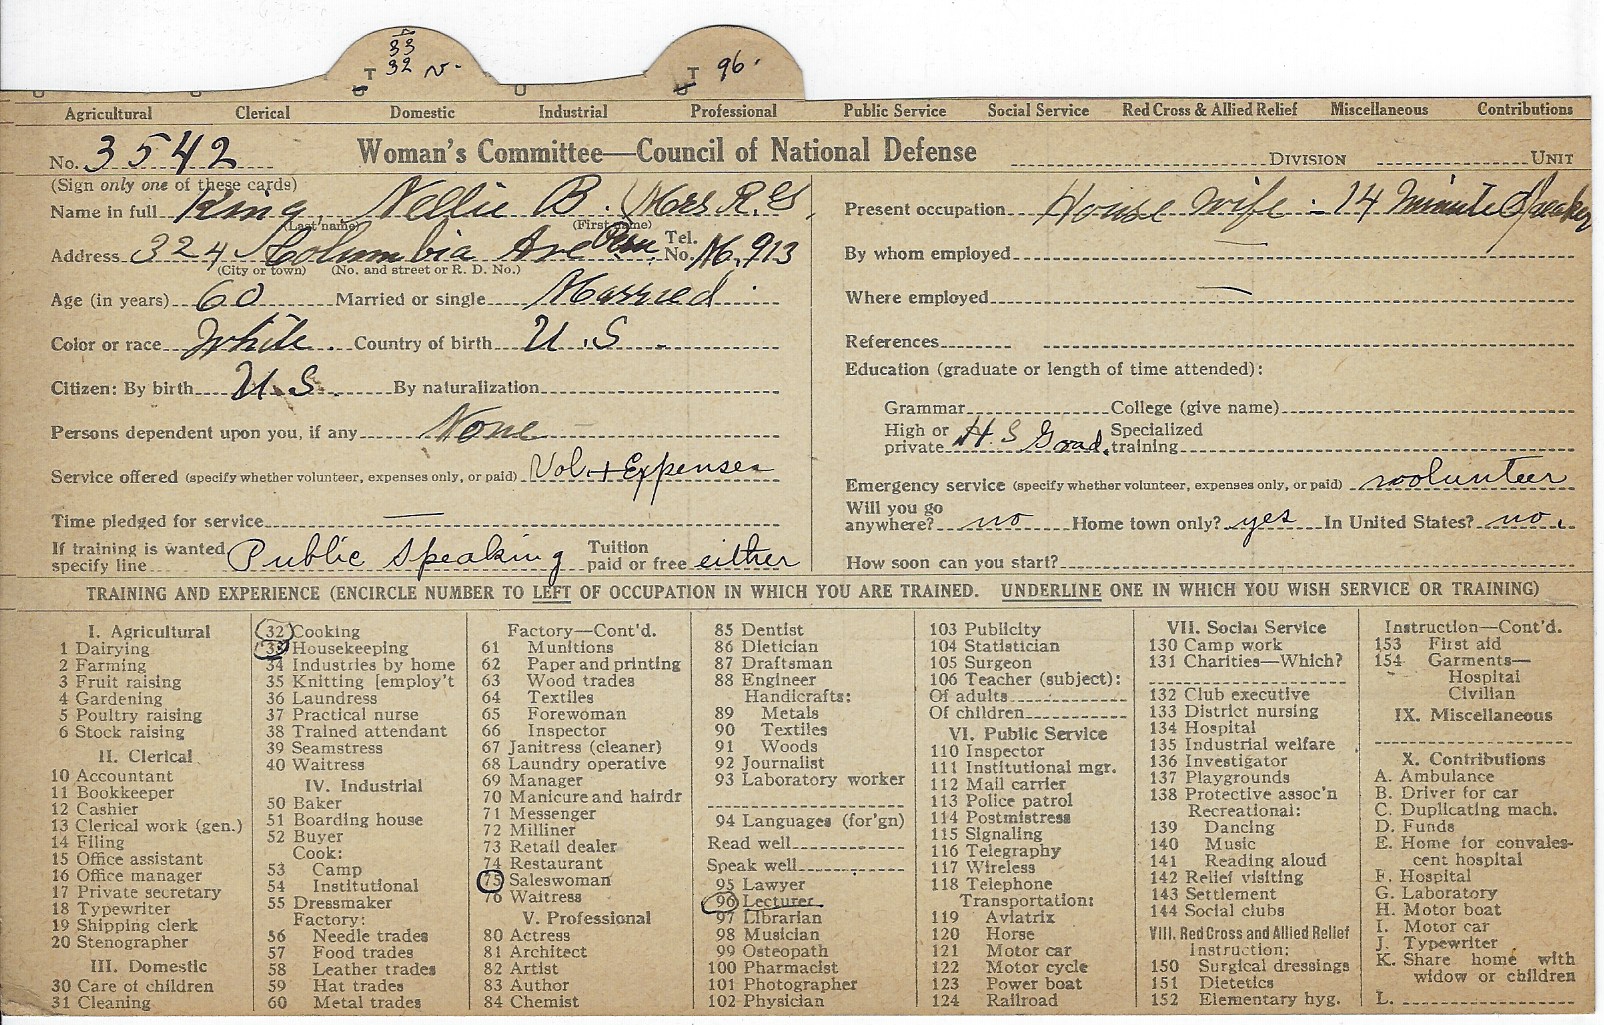 33
T 32 N.
T 96.
Agricultural Clerical Domestic Industrial Professional Public Service Social Service Red Cross & Allied Relief Miscellaneous Contributions
No. 3542 Woman's Committee—Council of National Defense DIVISION UNIT
(Sign only one of these cards)
Name in full King, Nellie B. (Mrs R. G
(Last name) (First name)
Address 324 Columbia Ave Tel. No. M. 913
(City or town) (No. and street or R. D. No.)
Age (in years) 60 Married or single Married
Color or race White. Country of birth U.S.
Citizen: By birth U.S. By naturalization
Persons dependent upon you, if any None
Service offered (specify whether volunteer, expenses only, or paid) Vol. + Expenses
Time pledged for service —
If training is wanted specify line Public Speaking Tuition paid or free either
Present occupation House wife - 14 Minute Speaker
By whom employed —
Where employed —
References
Education (graduate or length of time attended):
Grammar College (give name)
High or private H.S Grad. Specialized training
Emergency service (specify whether volunteer, expenses only, or paid) volunteer
Will you go anywhere? no Home town only? yes In United States? no.
How soon can you start?
TRAINING AND EXPERIENCE (ENCIRCLE NUMBER TO LEFT OF OCCUPATION IN WHICH YOU ARE TRAINED. UNDERLINE ONE IN WHICH YOU WISH SERVICE OR TRAINING)
I. Agricultural
1 Dairying
2 Farming
3 Fruit raising
4 Gardening
5 Poultry raising
6 Stock raising
II. Clerical
10 Accountant
11 Bookkeeper
12 Cashier
13 Clerical work (gen.)
14 Filing
15 Office assistant
16 Office manager
17 Private secretary
18 Typewriter
19 Shipping clerk
20 Stenographer
III. Domestic
30 Care of children
31 Cleaning
32 Cooking
33 Housekeeping
34 Industries by home
35 Knitting [employ't
36 Laundress
37 Practical nurse
38 Trained attendant
39 Seamstress
40 Waitress
IV. Industrial
50 Baker
51 Boarding house
52 Buyer
Cook:
53 Camp
54 Institutional
55 Dressmaker
Factory:
56 Needle trades
57 Food trades
58 Leather trades
59 Hat trades
60 Metal trades
Factory—Cont'd.
61 Munitions
62 Paper and printing
63 Wood trades
64 Textiles
65 Forewoman
66 Inspector
67 Janitress (cleaner)
68 Laundry operative
69 Manager
70 Manicure and hairdr
71 Messenger
72 Milliner
73 Retail dealer
74 Restaurant
75 Saleswoman
76 Waitress
V. Professional
80 Actress
81 Architect
82 Artist
83 Author
84 Chemist
85 Dentist
86 Dietician
87 Draftsman
88 Engineer
Handicrafts:
89 Metals
90 Textiles
91 Woods
92 Journalist
93 Laboratory worker
94 Languages (for'gn)
Read well
Speak well
95 Lawyer
96 Lecturer
97 Librarian
98 Musician
99 Osteopath
100 Pharmacist
101 Photographer
102 Physician
103 Publicity
104 Statistician
105 Surgeon
106 Teacher (subject):
Of adults
Of children
VI. Public Service
110 Inspector
111 Institutional mgr.
112 Mail carrier
113 Police patrol
114 Postmistress
115 Signaling
116 Telegraphy
117 Wireless
118 Telephone
Transportation:
119 Aviatrix
120 Horse
121 Motor car
122 Motor cycle
123 Power boat
124 Railroad
VII. Social Service
130 Camp work
131 Charities—Which?
132 Club executive
133 District nursing
134 Hospital
135 Industrial welfare
136 Investigator
137 Playgrounds
138 Protective assoc'n
Recreational:
139 Dancing
140 Music
141 Reading aloud
142 Relief visiting
143 Settlement
144 Social clubs
VIII. Red Cross and Allied Relief
Instruction:
150 Surgical dressings
151 Dietetics
152 Elementary hyg.
Instruction—Cont'd.
153 First aid
154 Garments—
Hospital
Civilian
IX. Miscellaneous
X. Contributions
A. Ambulance
B. Driver for car
C. Duplicating mach.
D. Funds
E. Home for convales-
cent hospital
F. Hospital
G. Laboratory
H. Motor boat
I. Motor car
J. Typewriter
K. Share home with
widow or children
L.